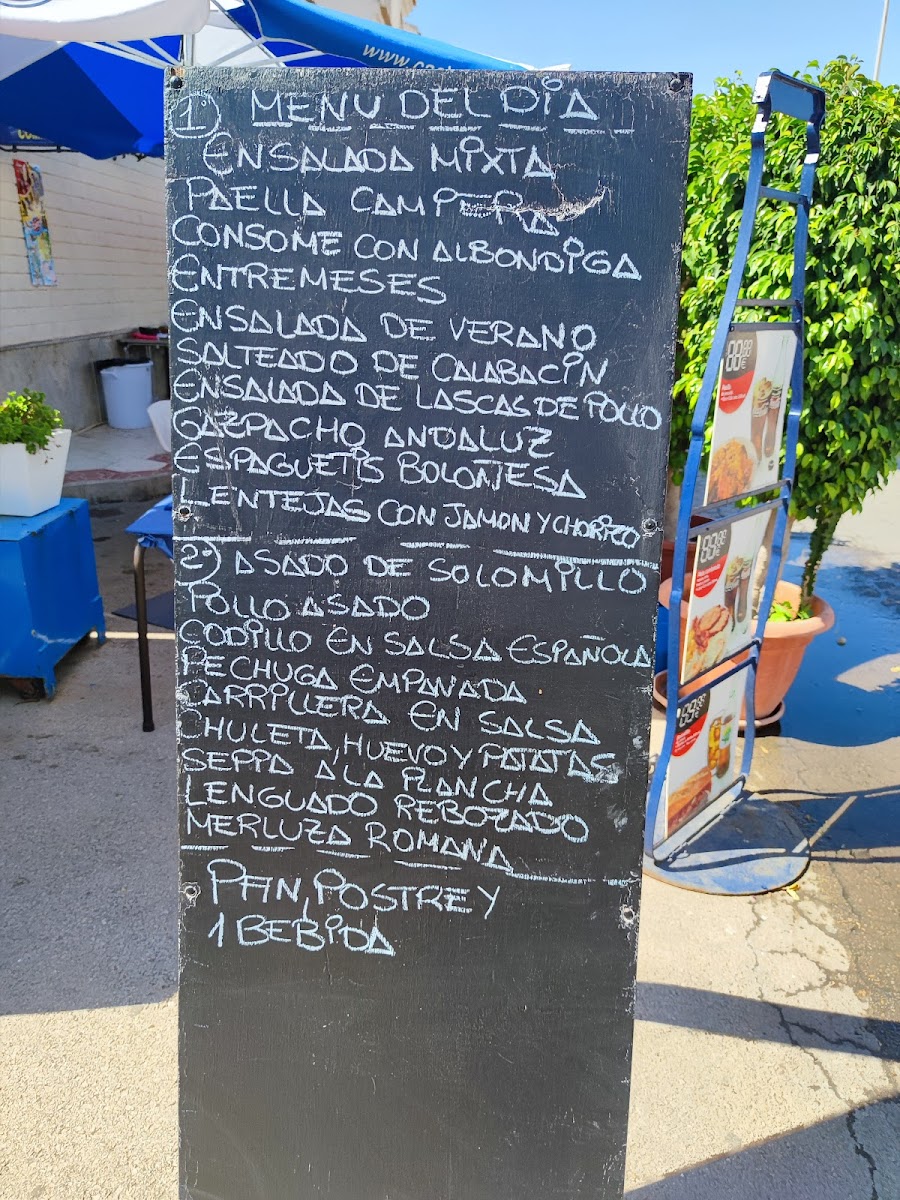 www.
1º) MENU DEL DIA
ENSALADA MIXTA
PAELLA CAMPERA
CONSOME CON ALBONDIGA
ENTREMESES
ENSALADA DE VERANO
SALTEADO DE CALABACIN
ENSALADA DE LASCAS DE POLLO
GAZPACHO ANDALUZ
ESPAGUETIS BOLOÑESA
LENTEJAS CON JAMON Y CHORIZO
2º) ASADO DE SOLOMILLO
POLLO ASADO
CODILLO EN SALSA ESPAÑOLA
PECHUGA EMPANADA
CARRILLERA EN SALSA
CHULETA, HUEVO Y PATATAS
SEPPA A LA PLANCHA
LENGUADO REBOZADO
MERLUZA ROMANA
PAN, POSTRE Y
1 BEBIDA